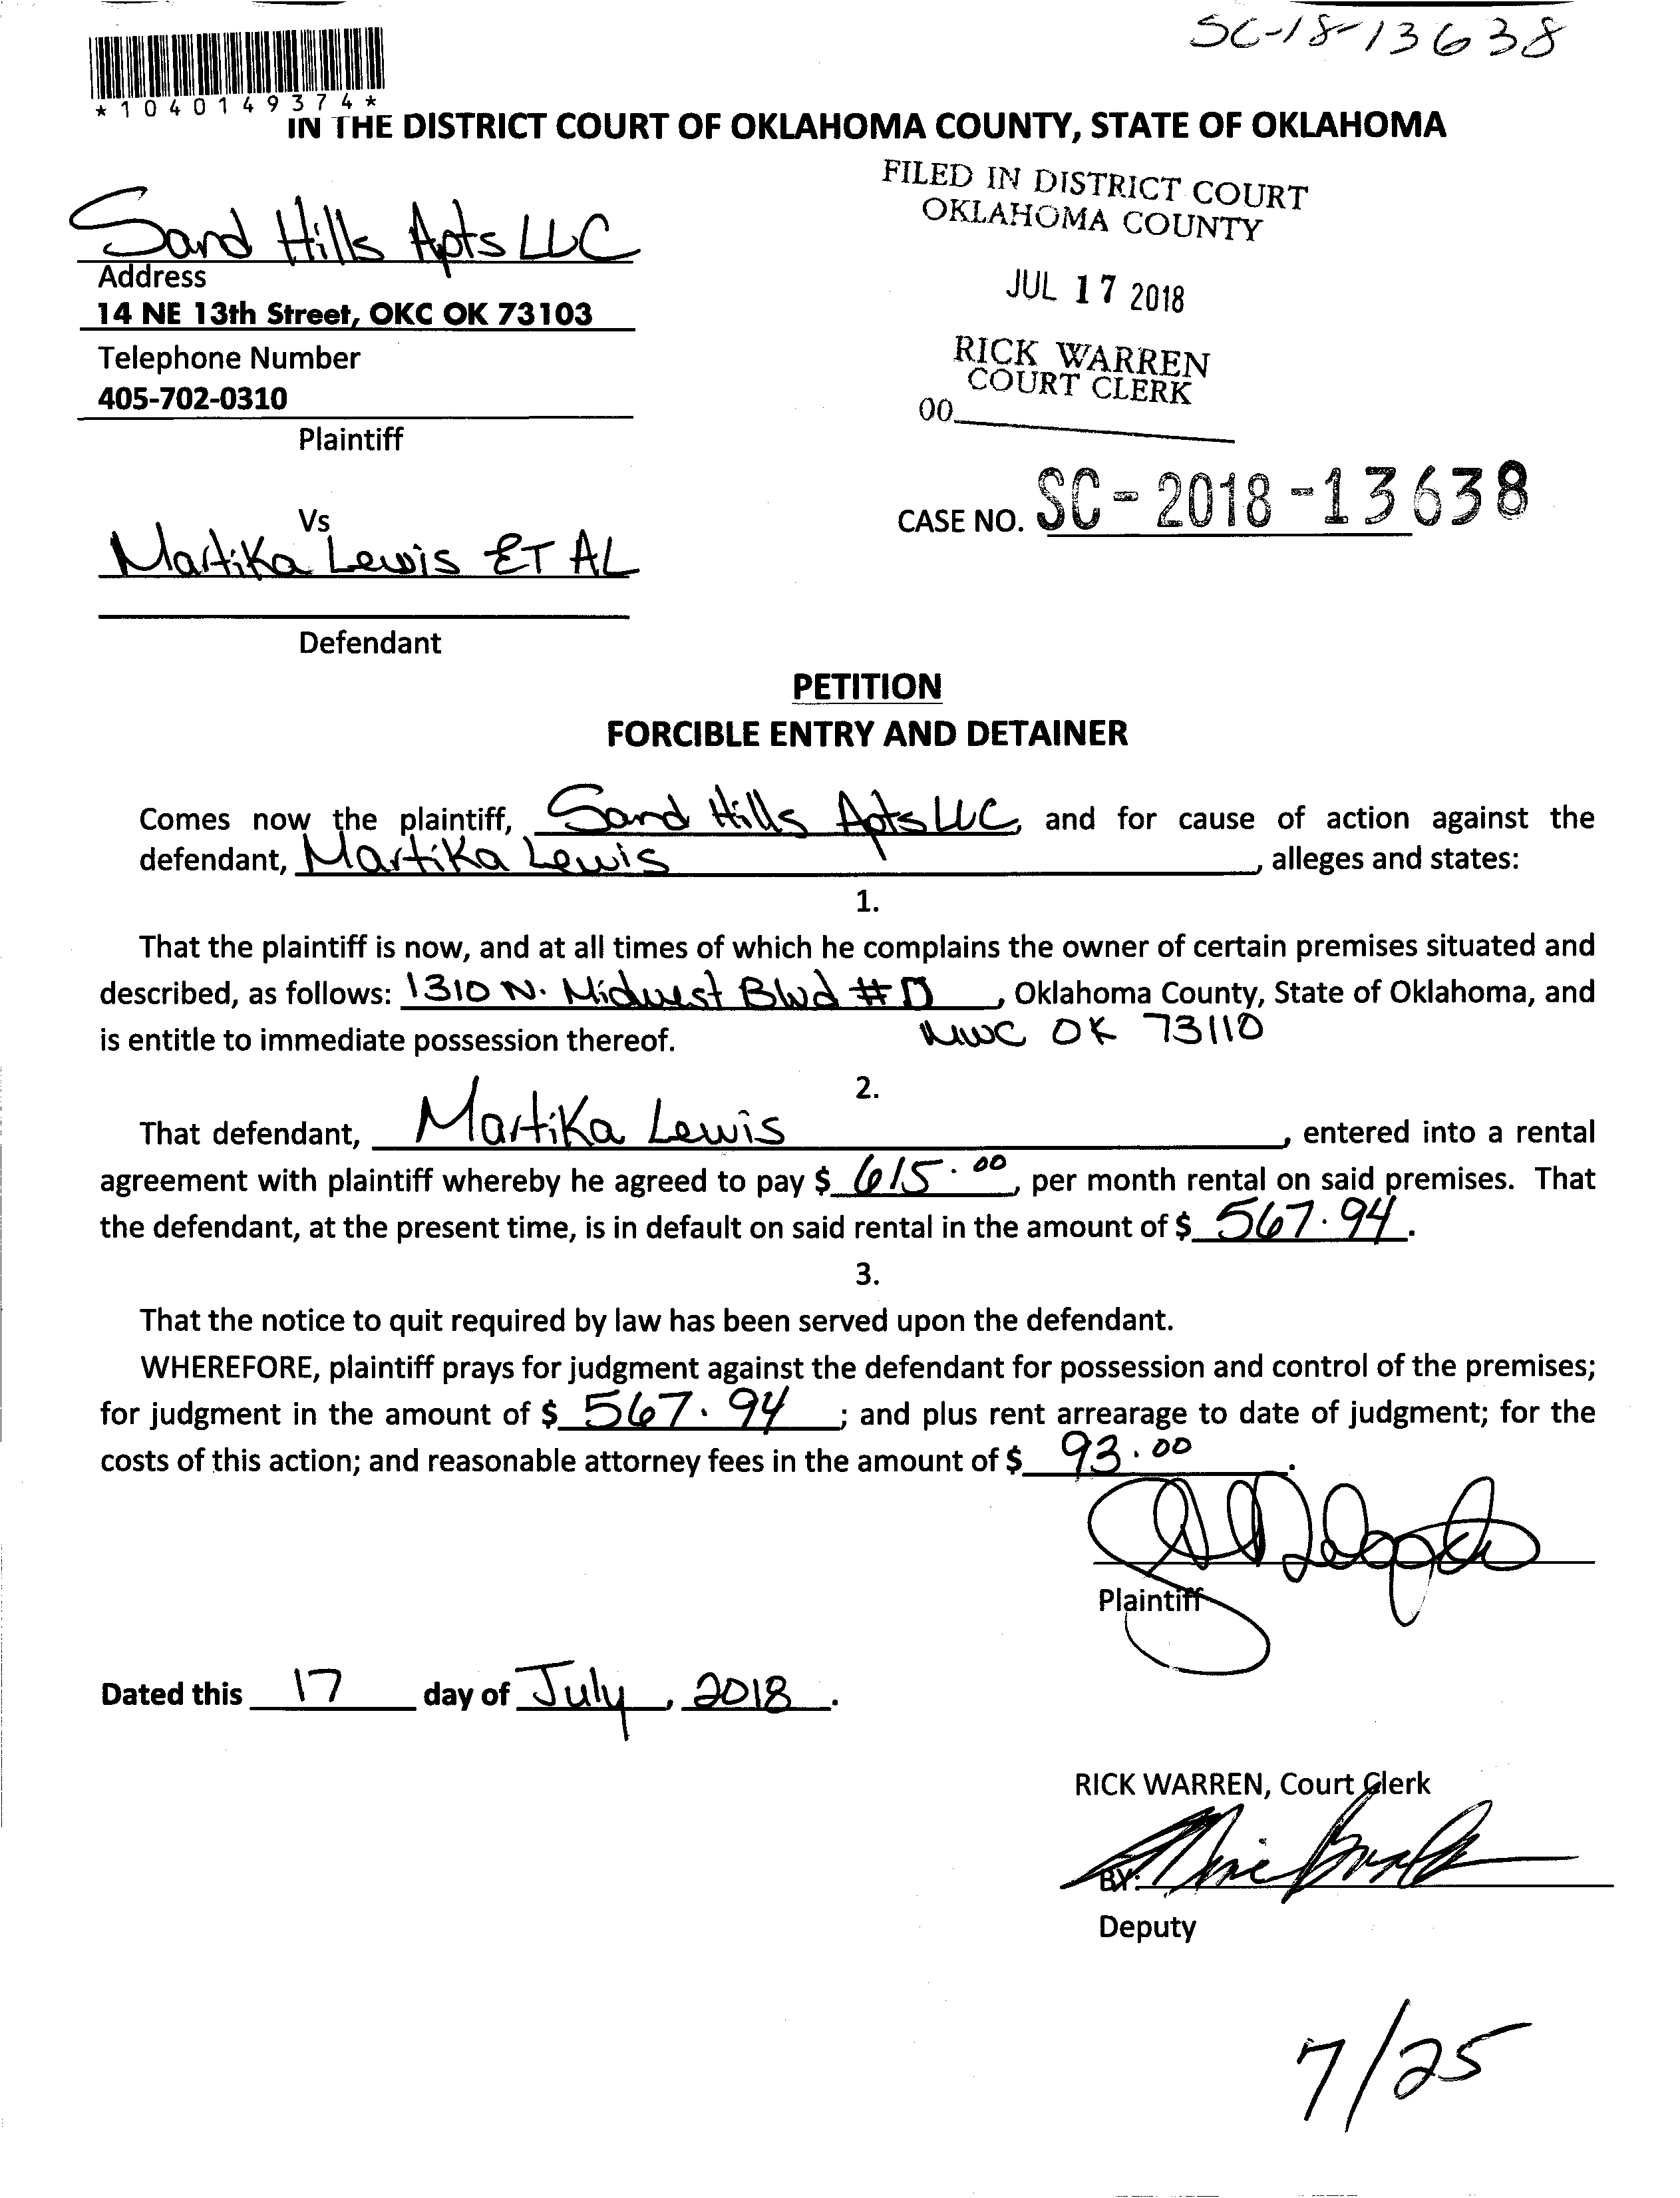 SC-18-13638
*1040149374*
IN THE DISTRICT COURT OF OKLAHOMA COUNTY, STATE OF OKLAHOMA
FILED IN DISTRICT COURT
OKLAHOMA COUNTY
JUL 17 2018
RICK WARREN
COURT CLERK
00
Sand Hills Apts LLC
Address
14 NE 13th Street, OKC OK 73103
Telephone Number
405-702-0310
Plaintiff
Vs
CASE NO. SC-2018-13638
Martika Lewis ET AL
Defendant
PETITION
FORCIBLE ENTRY AND DETAINER
Comes now the plaintiff, Sand Hills Apts LLC, and for cause of action against the
defendant, Martika Lewis, alleges and states:
1.
That the plaintiff is now, and at all times of which he complains the owner of certain premises situated and
described, as follows: 1310 N. Midwest Blvd #D, Oklahoma County, State of Oklahoma, and
is entitle to immediate possession thereof. MWC OK 73110
2.
That defendant, Martika Lewis, entered into a rental
agreement with plaintiff whereby he agreed to pay $ 615.00, per month rental on said premises. That
the defendant, at the present time, is in default on said rental in the amount of $ 567.94.
3.
That the notice to quit required by law has been served upon the defendant.
WHEREFORE, plaintiff prays for judgment against the defendant for possession and control of the premises;
for judgment in the amount of $ 567.94; and plus rent arrearage to date of judgment; for the
costs of this action; and reasonable attorney fees in the amount of $ 93.00.
Plaintiff
Dated this 17 day of July, 2018.
RICK WARREN, Court Clerk
BY:
Deputy
7/25